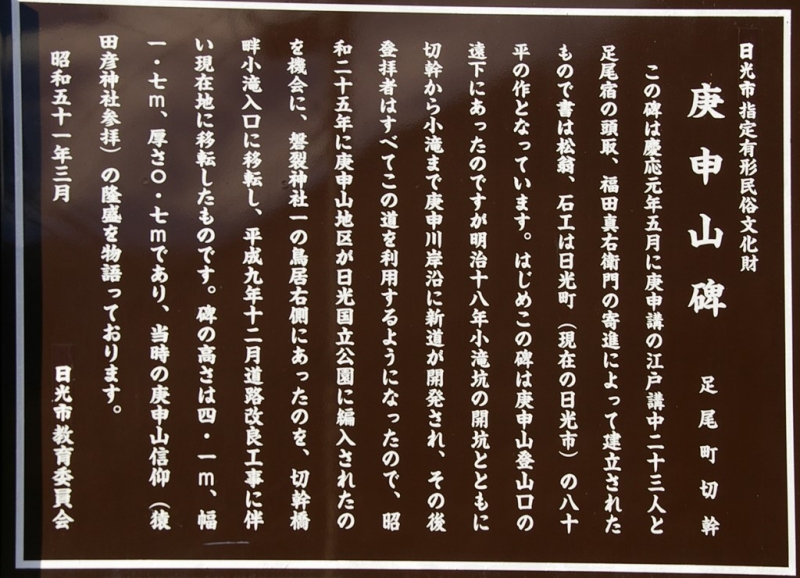 日光市指定有形民俗文化財
庚申山碑 足尾町切幹
この碑は慶応元年五月に庚申講の江戸講中二十三人と
足尾宿の頭取、福田真右衛門の寄進によって建立された
もので書は松翁、石工は日光町（現在の日光市）の八十
平の作となっています。はじめこの碑は庚申山登山口の
遠下にあったのですが明治十八年小滝坑の開坑とともに
切幹から小滝まで庚申川岸沿に新道が開発され、その後
登拝者はすべてこの道を利用するようになったので、昭
和二十五年に庚申山地区が日光国立公園に編入されたの
を機会に、磐裂神社一の鳥居右側にあったのを、切幹橋
畔小滝入口に移転し、平成九年十二月道路改良工事に伴
い現在地に移転したものです。碑の高さは四・一m、幅
一・七m、厚さ〇・七mであり、当時の庚申山信仰（猿
田彦神社参拝）の隆盛を物語っております。
昭和五十一年三月 日光市教育委員会